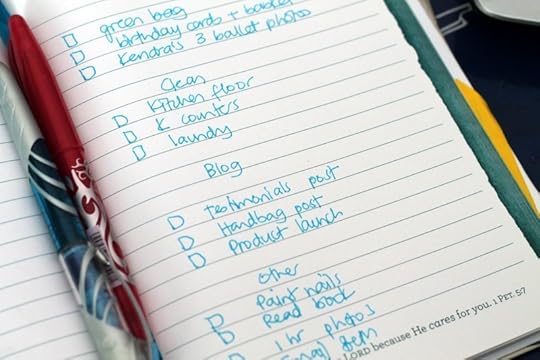 green bag
birthday cards + basket
Kendra's 3 ballet photos
Clean
Kitchen floor
K counters
laundry
Blog
testimonials post
Handbag post
Product launch
Other
Paint nails
Read book
1 hr photos
LORD because He cares for you. 1 PET. 5:7